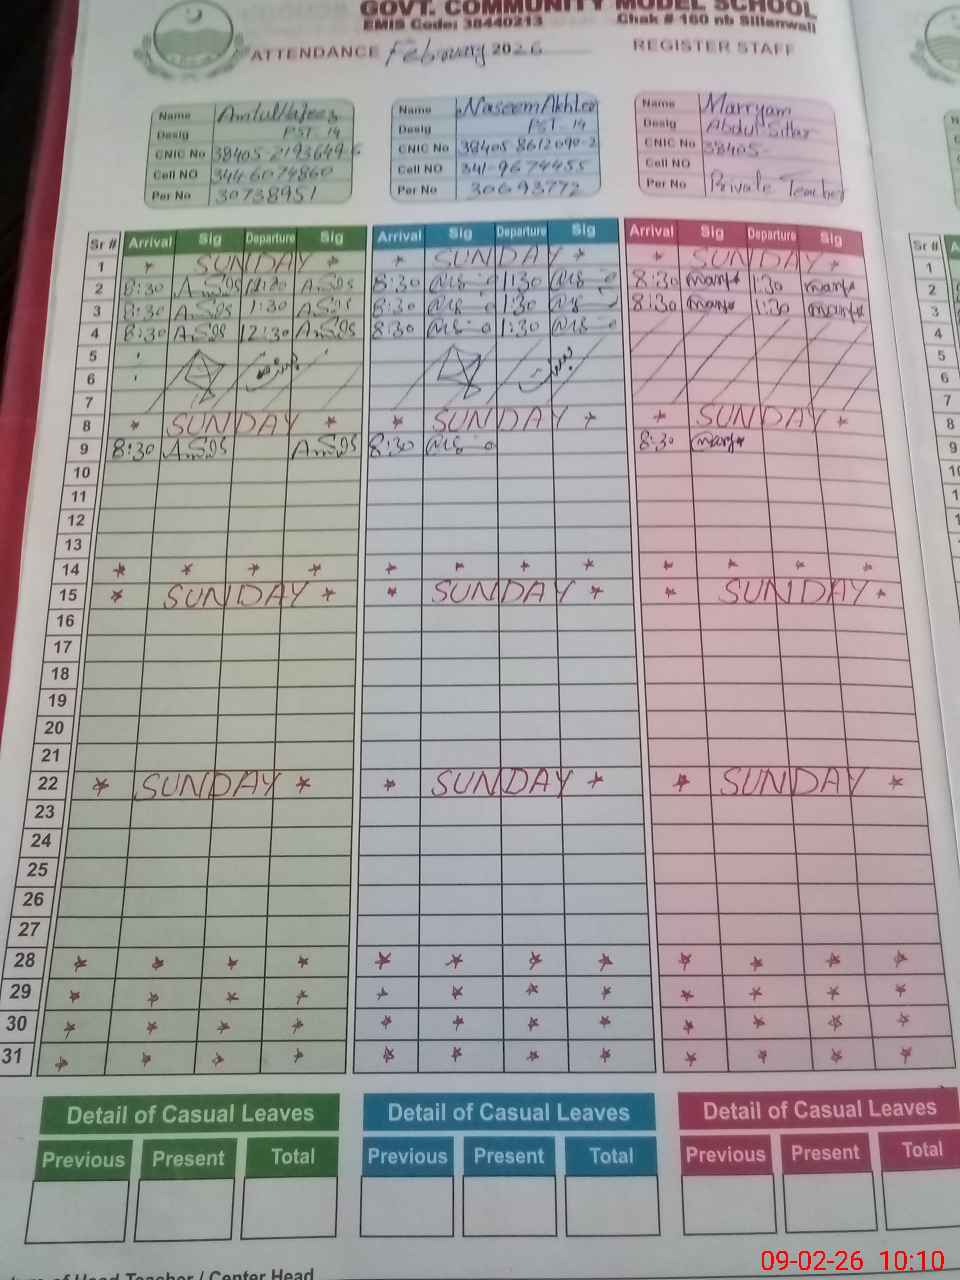 GOVT. COMMUNITY MODEL SCHOOL
EMIS Code: 38440213 Chak # 160 nb Sillanwali
ATTENDANCE February 2026 REGISTER STAFF
Name Amtul Hafeez
Desig PST-14
CNIC No 38405-2193649-6
Cell NO 3446074860
Per No 30738951
Name Naseem Akhter
Desig PST-14
CNIC No 38405 8612090-2
Cell NO 341-9674455
Per No 30693772
Name Marryam
Desig Abdul Sittar
CNIC No 38405-
Cell NO
Per No Private Teacher
Sr # Arrival Sig Departure Sig Arrival Sig Departure Sig Arrival Sig Departure Sig Sr #
1 * SUNDAY * * SUNDAY * * SUNDAY * 1
2 8:30 8:30 1:30 8:30 1:30 2
3 8:30 1:30 8:30 1:30 8:30 1:30 3
4 8:30 12:30 8:30 1:30 4
5 5
6 6
7 7
8 * SUNDAY * * SUNDAY * * SUNDAY * 8
9 8:30 8:30 8:30 9
10
11
12
13
14 * * * * * * * * * * * * 14
15 * SUNDAY * * SUNDAY * * SUNDAY * 15
16 16
17 17
18 18
19 19
20 20
21 21
22 * SUNDAY * * SUNDAY * * SUNDAY * 22
23
24
25
26
27
28 * * * * * * * * * * * *
29 * * * * * * * * * * * *
30 * * * * * * * * * * * *
31 * * * * * * * * * * * *
Detail of Casual Leaves Detail of Casual Leaves Detail of Casual Leaves
Previous Present Total Previous Present Total Previous Present Total
of Head Teacher / Center Head
09-02-26 10:10